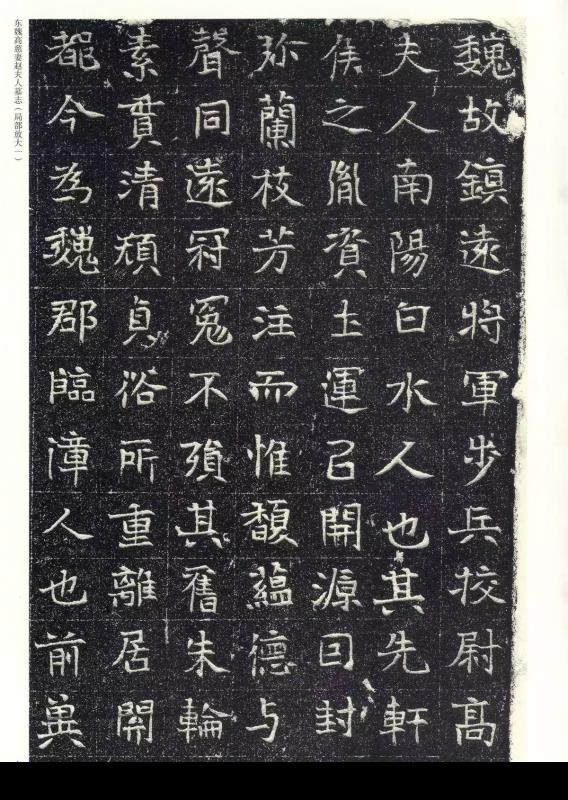 魏故鎮遠將軍步兵挍尉髙
夫人南陽白水人也其先軒
侯之胤資土運㠯開源囙封
弥蘭枝芳注而惟馥蘊德与
聲同遠冠冕不殞其舊朱輪
素貫清頹貞俗所重離居開
都今為魏郡臨漳人也前兾
东魏高慈妻赵夫人墓志（局部放大一）